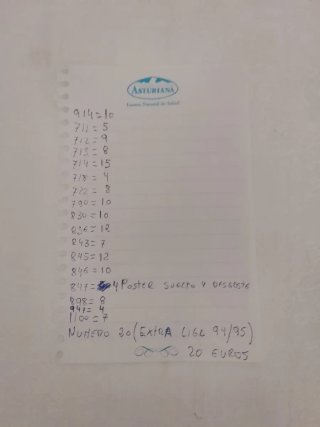 ASTURIANA
Fuente Natural de Salud
914=10
711=5
712=9
713=8
714=15
718=4
722=8
790=10
830=10
836=12
843=7
845=12
846=10
847=4 POSTER SUELTO Y
898=8
941=4
1100=7
NUMERO 20 (EXTRA LIGA 94/95)
20 EUROS